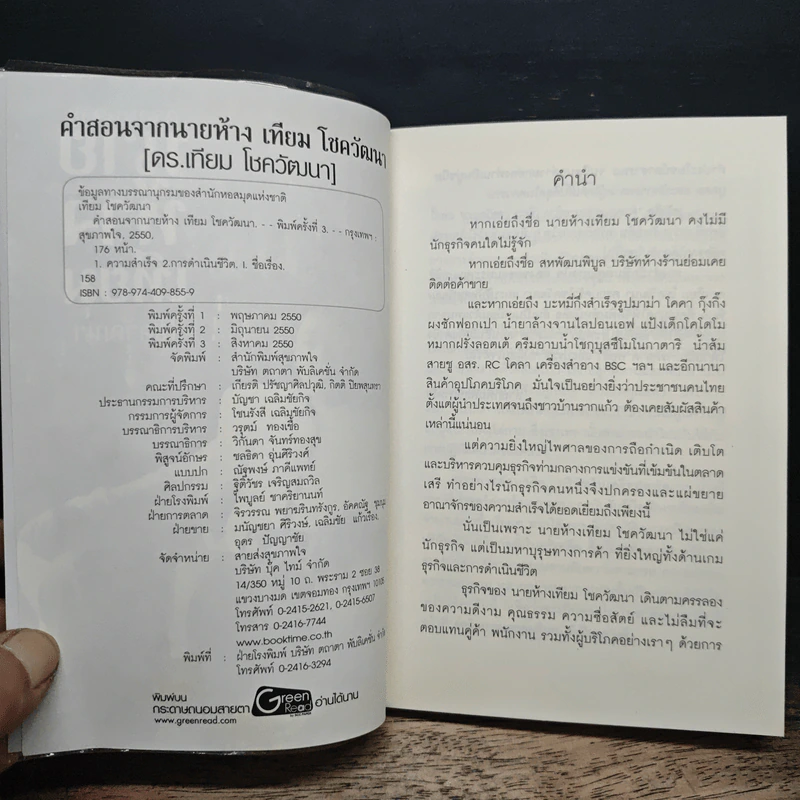 คำสอนจากนายห้าง เทียม โชควัฒนา
[ดร.เทียม โชควัฒนา]
ข้อมูลทางบรรณานุกรมของสำนักหอสมุดแห่งชาติ
เทียม โชควัฒนา
คำสอนจากนายห้าง เทียม โชควัฒนา. - - พิมพ์ครั้งที่ 3. - - กรุงเทพฯ :
สุขภาพใจ, 2550.
176 หน้า.
1. ความสำเร็จ 2.การดำเนินชีวิต. I. ชื่อเรื่อง.
158
ISBN : 978-974-409-855-9
พิมพ์ครั้งที่ 1 : พฤษภาคม 2550
พิมพ์ครั้งที่ 2 : มิถุนายน 2550
พิมพ์ครั้งที่ 3 : สิงหาคม 2550
จัดพิมพ์ : สำนักพิมพ์สุขภาพใจ
บริษัท ตถาตา พับลิเคชั่น จำกัด
คณะที่ปรึกษา : เกียรติ ปรัชญาศิลปวุฒิ, กิตติ ปิยพสุนทรา
ประธานกรรมการบริหาร : บัญชา เฉลิมชัยกิจ
กรรมการผู้จัดการ : โชนรังสี เฉลิมชัยกิจ
บรรณาธิการบริหาร : วรุตม์ ทองเชื้อ
บรรณาธิการ : วิกันดา จันทร์ทองสุข
พิสูจน์อักษร : ชลธิดา อุ่นศิริวงศ์
แบบปก : ณัฐพงษ์ ภาคีแพทย์
ศิลปกรรม : ฐิติวัชร เจริญสมถวิล
ฝ่ายโรงพิมพ์ : ไพบูลย์ ชาคริยานนท์
ฝ่ายการตลาด : จิรวรรณ พยาฆรินทรังกูร, อัคคณัฐ
ฝ่ายขาย : มนัญชยา ศิริวงษ์, เฉลิมชัย แก้วเรือง,
อุดร ปัญญาชัย
จัดจำหน่าย : สายส่งสุขภาพใจ
บริษัท บุ๊ค ไทม์ จำกัด
14/350 หมู่ 10 ถ. พระราม 2 ซอย 38
แขวงบางมด เขตจอมทอง กรุงเทพฯ 10105
โทรศัพท์ 0-2415-2621, 0-2415-6507
โทรสาร 0-2416-7744
www.booktime.co.th
พิมพ์ที่ : ฝ่ายโรงพิมพ์ บริษัท ตถาตา พับลิเคชั่น จำกัด
โทรศัพท์ 0-2416-3294
พิมพ์บน
กระดาษถนอมสายตา Green Read อ่านได้นาน
www.greenread.com
คำนำ
หากเอ่ยถึงชื่อ นายห้างเทียม โชควัฒนา คงไม่มี
นักธุรกิจคนใดไม่รู้จัก
หากเอ่ยถึงชื่อ สหพัฒนพิบูล บริษัทห้างร้านย่อมเคย
ติดต่อค้าขาย
และหากเอ่ยถึง บะหมี่กึ่งสำเร็จรูปมาม่า โคคา กุ๊งกิ๊ง
ผงซักฟอกเปา น้ำยาล้างจานไลปอนเอฟ แป้งเด็กโคโดโม
หมากฝรั่งลอตเต้ ครีมอาบน้ำโชกุบุสซึโมโนกาตาริ น้ำส้ม
สายชู อสร. RC โคลา เครื่องสำอาง BSC ฯลฯ และอีกนานา
สินค้าอุปโภคบริโภค มั่นใจเป็นอย่างยิ่งว่าประชาชนคนไทย
ตั้งแต่ผู้นำประเทศจนถึงชาวบ้านรากแก้ว ต้องเคยสัมผัสสินค้า
เหล่านี้แน่นอน
แต่ความยิ่งใหญ่ไพศาลของการถือกำเนิด เติบโต
และบริหารควบคุมธุรกิจท่ามกลางการแข่งขันที่เข้มข้นในตลาด
เสรี ทำอย่างไรนักธุรกิจคนหนึ่งจึงปกครองและแผ่ขยาย
อาณาจักรของความสำเร็จได้ยอดเยี่ยมถึงเพียงนี้
นั่นเป็นเพราะ นายห้างเทียม โชควัฒนา ไม่ใช่แค่
นักธุรกิจ แต่เป็นมหาบุรุษทางการค้า ที่ยิ่งใหญ่ทั้งด้านเกม
ธุรกิจและการดำเนินชีวิต
ธุรกิจของ นายห้างเทียม โชควัฒนา เดินตามครรลอง
ของความดีงาม คุณธรรม ความซื่อสัตย์ และไม่ลืมที่จะ
ตอบแทนคู่ค้า พนักงาน รวมทั้งผู้บริโภคอย่างเราๆ ด้วยการ